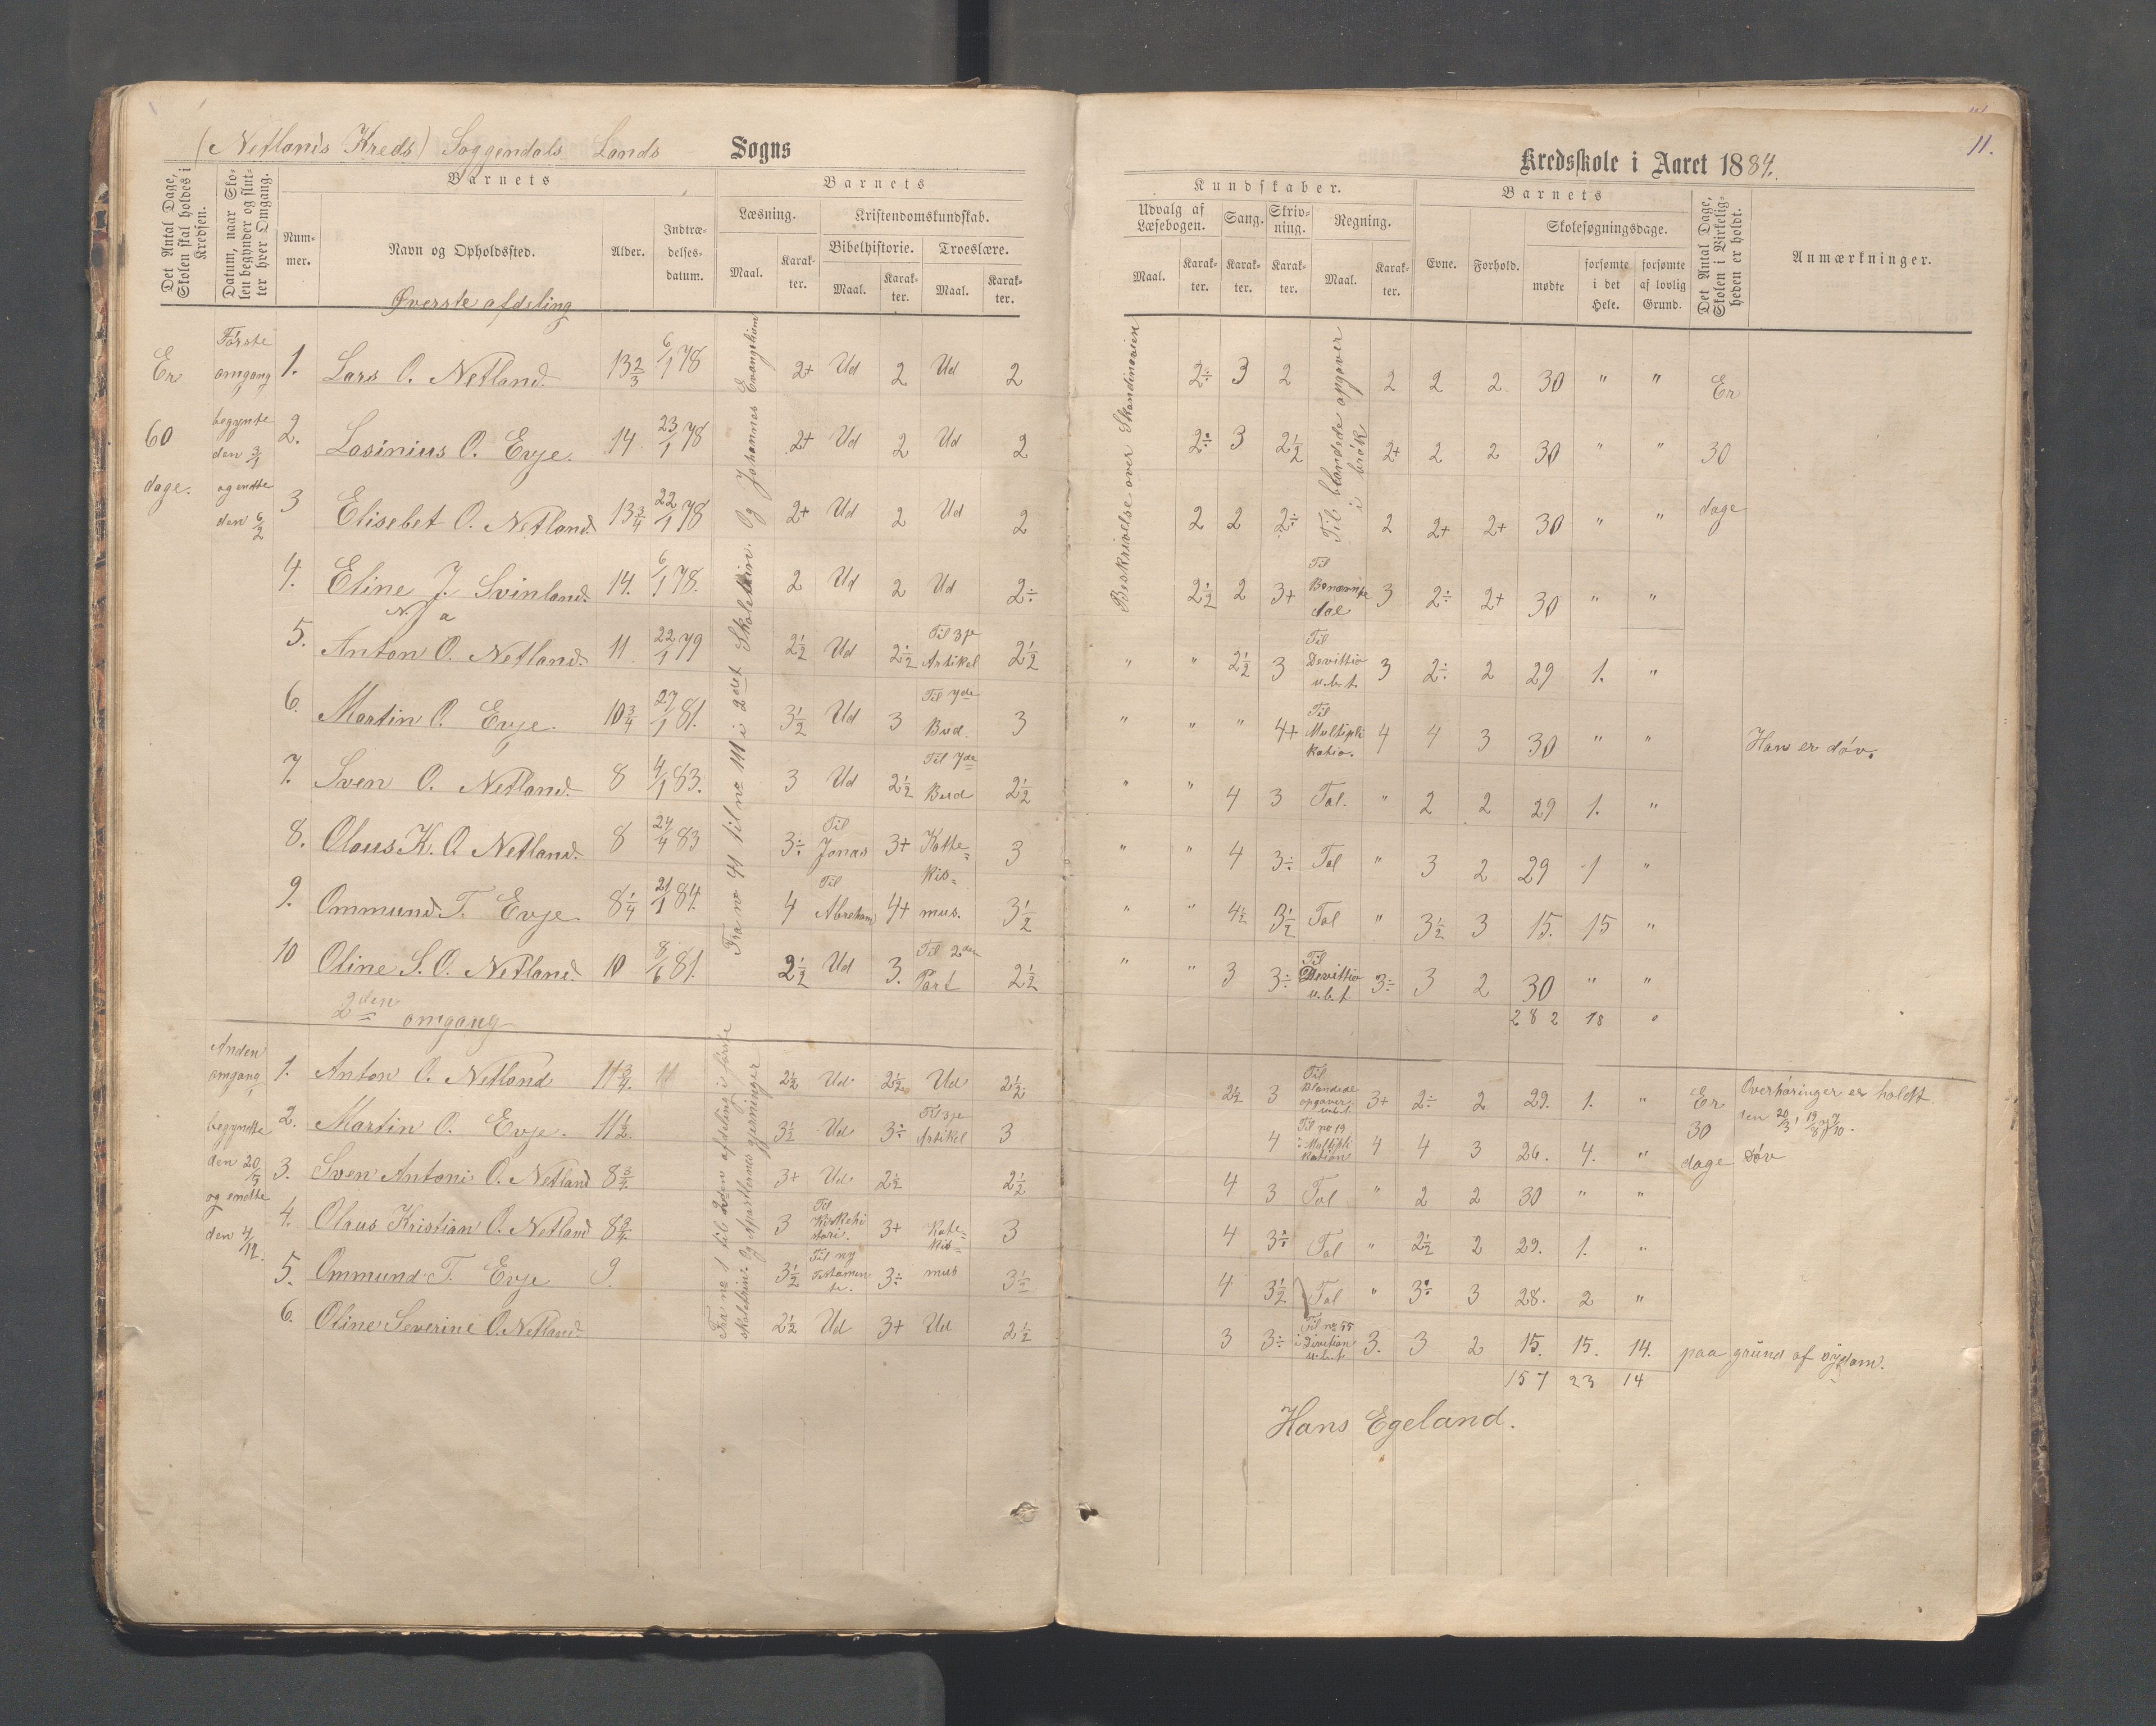 (Netlands Kreds) Soggendals Lands Sogns
Kredsskole i Aaret 1884.
11.
Det Antal Dage, Skolen skal holdes i Kredsen.
Datum, naar Skolen begynder og slutter hver Omgang.
Barnets
Nummer.
Navn og Opholdssted.
Alder.
Indtrædelsesdatum.
Barnets
Læsning.
Maal.
Karakter.
Kristendomskundskab.
Bibelhistorie.
Maal.
Karakter.
Troeslære.
Maal.
Karakter.
Kundskaber.
Udvalg af Læsebogen.
Maal.
Karakter.
Sang.
Karakter.
Skrivning.
Karakter.
Regning.
Maal.
Karakter.
Barnets
Evne.
Forhold.
Skolesøgningsdage.
mødte
forsømte i det Hele.
forsømte af lovlig Grund.
Det Antal Dage, Skolen i Virkeligheden er holdt.
Anmærkninger.
Øverste afdeling
Er 60 dage.
Første omgang begynte den 3/1 og endte den 6/2
Fra no 41 til no 111 i 2det Skoletrin. Og Johannes Evangelium
Beskrivelse over Skandinavien
Til blandede opgaver i brøk
1. Lars O. Netland. 13 2/3 6/1 78 2+ Ud 2 Ud 2 2÷ 3 2 2 2 2 30 " " Er
2. Lasinius O. Evje. 14 23/1 78 2+ Ud 2 Ud 2 2÷ 3 2 1/2 2+ 2 2 30 " " 30
3 Elisebet O. Netland. 13 3/4 22/1 78 2+ Ud 2 Ud 2 2 2 2÷ 2 2+ 2+ 30 " " dage
4. Eline J. Svinland. 14. 6/1 78. 2 Ud 2 Ud 2÷ 2 1/2 2 3+ Til Benævnte dae 3 2÷ 2+ 30 " "
5. Anton O. Netland. 11 22/1 79 2 1/2 Ud 2 1/2 Til 3je Artikel 2 1/2 " " 2 1/2 3 Til Devittio u.b.t. 3 2÷ 2 29 1. "
6. Martin O. Evje. 10 3/4 27/1 81. 3 1/2 Ud 3 Til 7de Bud. 3 " " " 4+ Til Multiplikatio. 4 4 3 30 " " Han er døv.
7. Sven O. Netland. 8 4/1 83. 3 Ud 2 1/2 Til 7de Bud 2 1/2 " " 4 3 Tal. " 2 2 29 1. "
8. Olaus K. O. Netland. 8 24/4 83 3÷ Til Jonas 3+ Katte= 3 " " 4 3÷ Tal " 3 2 29 1 "
9. Ommund T. Evje. 8 1/4 21/1 84. 4 Til Abreham 4+ kis= mus. 3 1/2 " " 4 1/2 3 1/2 Tal " 3 1/2 3 15. 15 "
10 Oline S. O. Netland. 10 8/6 81. 2 1/2 Ud 3. Til 2den Part 2 1/2 " " 3 3÷ Til Devittio u.b.t. 3÷ 3 2 30 " "
282 18 "
2den omgang
Anden omgang, begyndte den 20/3 og endte den 4/12.
Fra no 1 til 2den afdeling i første skoletrin. Og Apostlernes gjerninger
1. Anton O. Netland 11 3/4. 11 2 1/2 Ud 2 1/2 Ud 2 1/2 2 1/2 3 Til Blandede opgaver u.b.t. 3+ 2÷ 2 29. 1. " Er Overhøringer er holdt den 20/3, 19/8 og 7/10.
2. Martin O. Evje. 11 1/2 3 1/2 Ud 3÷ Til 3je Artikel 3 4 Til no 19 i Multiplikation 4 4 3 26. 4. " 30 Døv
3. Sven Antoni O. Netland 8 3/4. 3+ Ud 2 1/2 2 1/2 4 3 Tal " 2 2 30 " " dage
4. Olaus Kristian O. Netland 8 3/4. 3 Til Kirkehistori. 3+ Kate= kis= 3 4 3÷ Tal " 2 1/2 2 29. 1. "
5. Ommund T. Evje 9. 3 1/2 Til ny Testamente. 3÷ mus 3 1/2 4 3 1/2 Tal " 3÷ 3 28. 2 "
6. Oline Severine O. Netland. 2 1/2 Ud 3+ Ud 2 1/2 3 3÷ Til no 55 i Division u.b.t. 3. 3 2 15. 15. 14. paa grund af sygdom.
157 23 14
Hans Egeland.